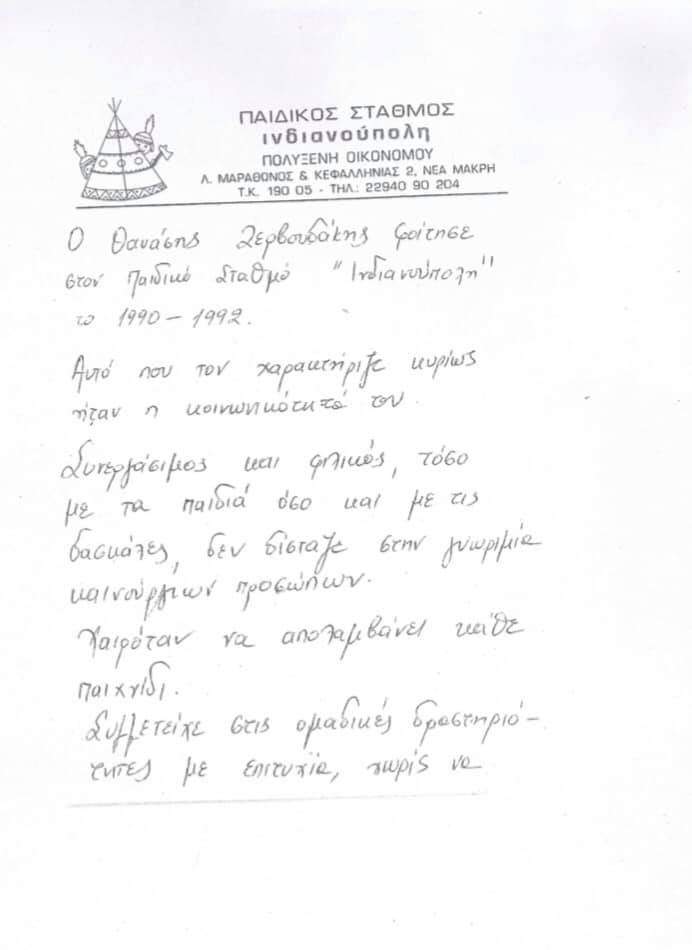 ΠΑΙΔΙΚΟΣ ΣΤΑΘΜΟΣ
ινδιανούπολη
ΠΟΛΥΞΕΝΗ ΟΙΚΟΝΟΜΟΥ
Λ. ΜΑΡΑΘΩΝΟΣ & ΚΕΦΑΛΛΗΝΙΑΣ 2, ΝΕΑ ΜΑΚΡΗ
Τ.Κ. 190 05 - ΤΗΛ.: 22940 90 204
Ο Θανάσης Ζερβουδάκης φοίτησε
στον Παιδικό Σταθμό "Ινδιανούπολη"
το 1990 - 1992.
Αυτό που τον χαρακτήριζε κυρίως
ήταν η κοινωνικότητά του.
Συνεργάσιμος και φιλικός, τόσο
με τα παιδιά όσο και με τις
δασκάλες, δεν δίσταζε στην γνωριμία
καινούργιων προσώπων.
Χαιρόταν να απολαμβάνει κάθε
παιχνίδι.
Συμμετείχε στις ομαδικές δραστηριό-
τητες με επιτυχία, χωρίς να